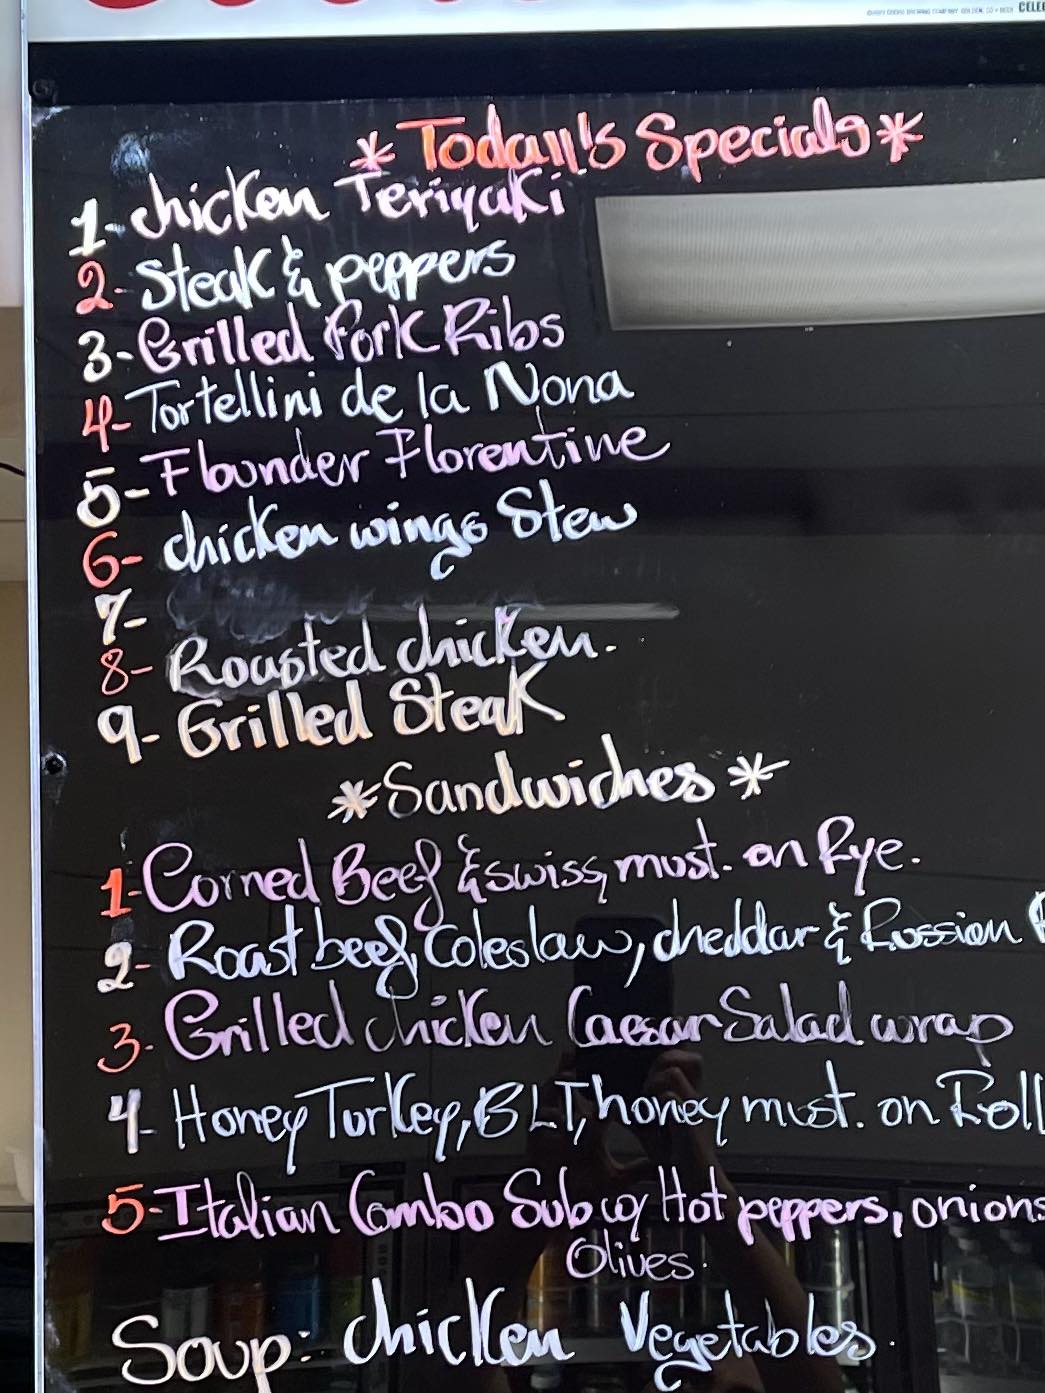 CELE
* Today's Specials *
1- chicken Teriyaki
2- Steak & peppers
3- Grilled Pork Ribs
4- Tortellini de la Nona
5- Flounder Florentine
6- chicken wings Stew
7-
8- Roasted chicken.
9- Grilled Steak
* Sandwiches *
1- Corned Beef & swiss, must. on Rye.
2- Roast beef, Coleslaw, cheddar & Russion
3- Grilled chicken Caesar Salad wrap
4- Honey Turkey, BLT, honey must. on Roll
5- Italian Combo Sub w/ Hot peppers, onions
Olives.
Soup: chicken Vegetables.